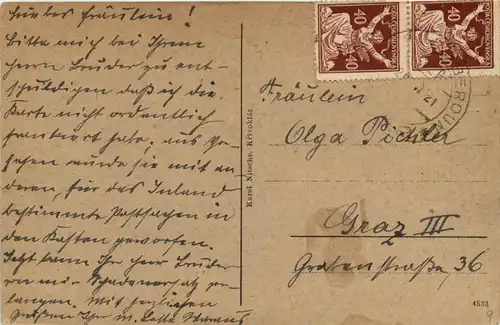 Liebes Fräulein!
Bitte mich bei Ihrem
Herrn Bruder zu ent-
schuldigen daß ich die
Karte nicht ordentlich
frankiert habe, aus Ver-
sehen wurde sie mit an
deren, für das Inland
bestimmte Postsachen in
den Kasten geworfen.
Jetzt kann Ihr Herr Bruder
von mir Schadenersatz ver-
langen. Mit herzlichen
Grüßen Ihr
Karel Nitsche, Křivoklát
40 40
40 40
BEROUN
Fräulein
Olga Pichler
Graz III
Grabenstraße, 36
4533
9